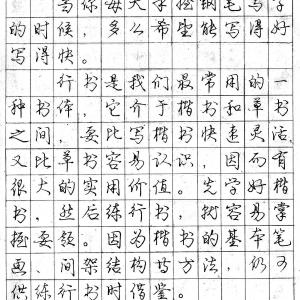 当你每天学握钢笔写字
的时候，多么希望能写得好
写得快。
行书是我们最常用的一
种书体，它介于楷书和草书
之间，要比写楷书快速灵活
又比草书容易认识，因而有
很大的实用价值。先学好楷
书，然后练行书，就容易掌
握要领。因为楷书的基本笔
画、间架结构等方法，仍可
供练行书时借鉴。